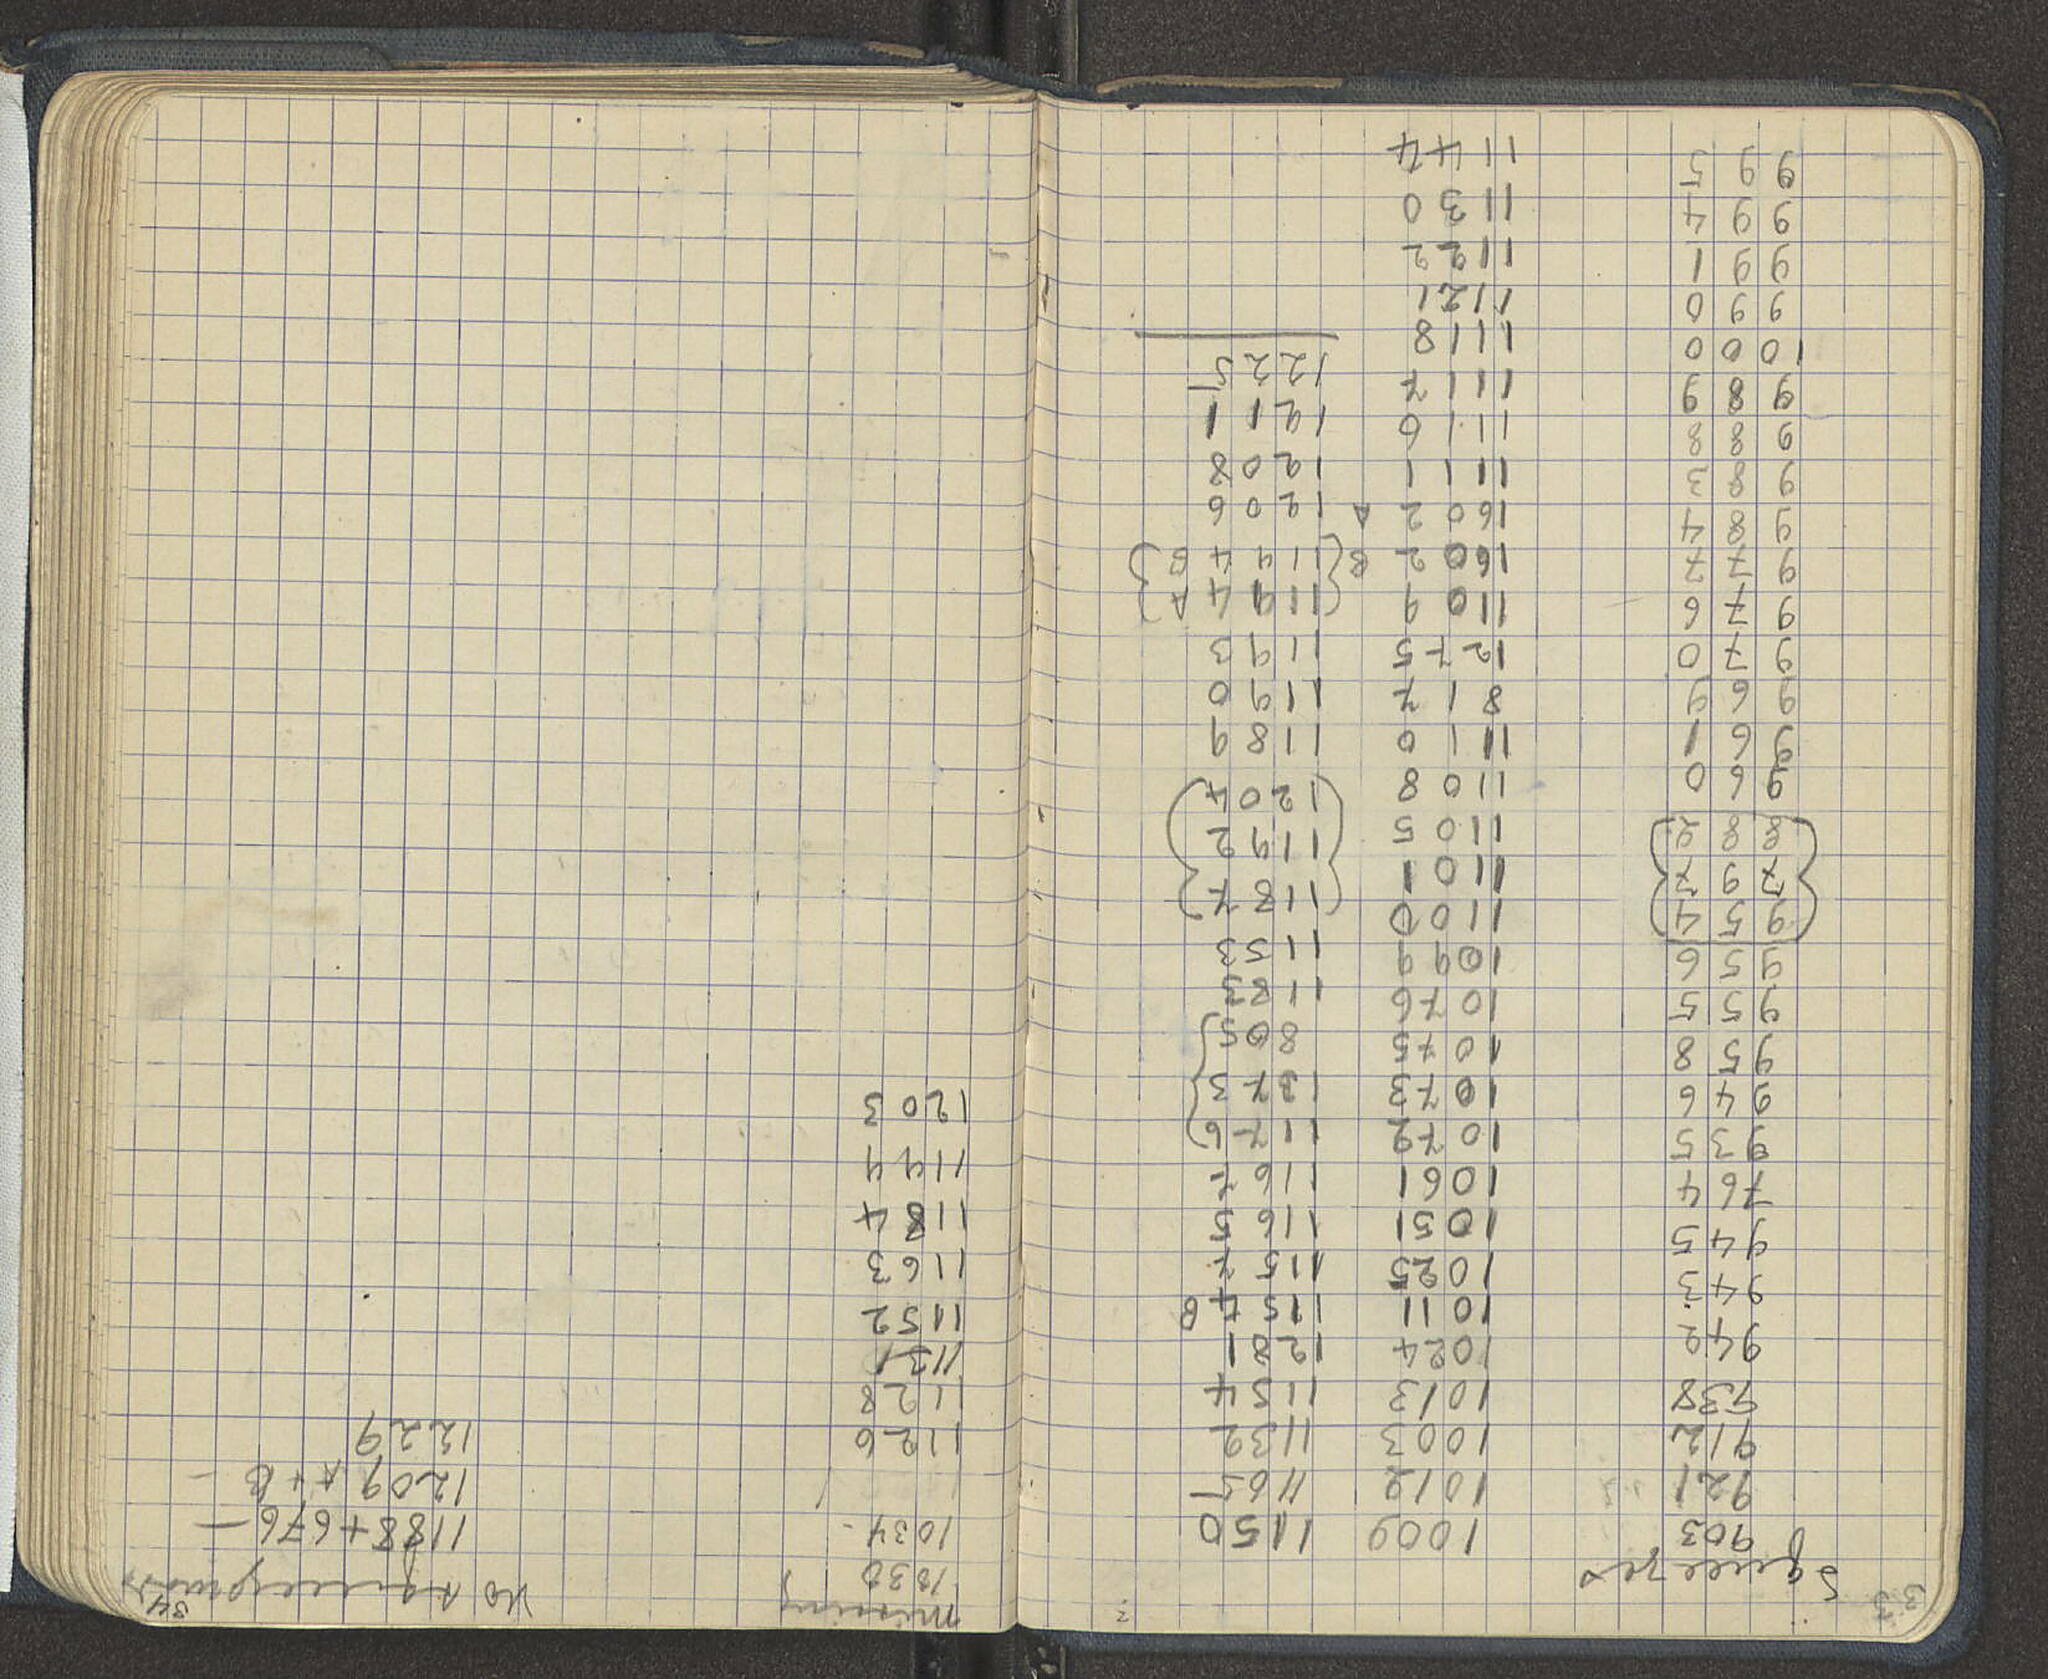 33
Squeezes
903
921
912
938
942
943
945
764
935
946
958
955
956
954
797
882
960
961
969
970
976
977
984
983
988
989
1000
990
991
994
995
1009
1012
1003
1013
1024
1011
1025
1051
1061
1072
1073
1075
1076
1099
1100
1101
1105
1108
1110
817
1275
1109
1602 B
1602 A
1111
1116
1117
1118
1121
1122
1130
1144
1150
1165
1132
1154
1281
1154 B
1157
1165
1167
1176
1373
805
1183
1153
1187
1192
1204
1189
1190
1193
1194 A
1194 B
1206
1208
1211
1225
34
missing
1030
1034 -
1126
1128
1131
1152
1163
1184
1199
1203
No
1188 + 676 —
1209 A + B —
1229